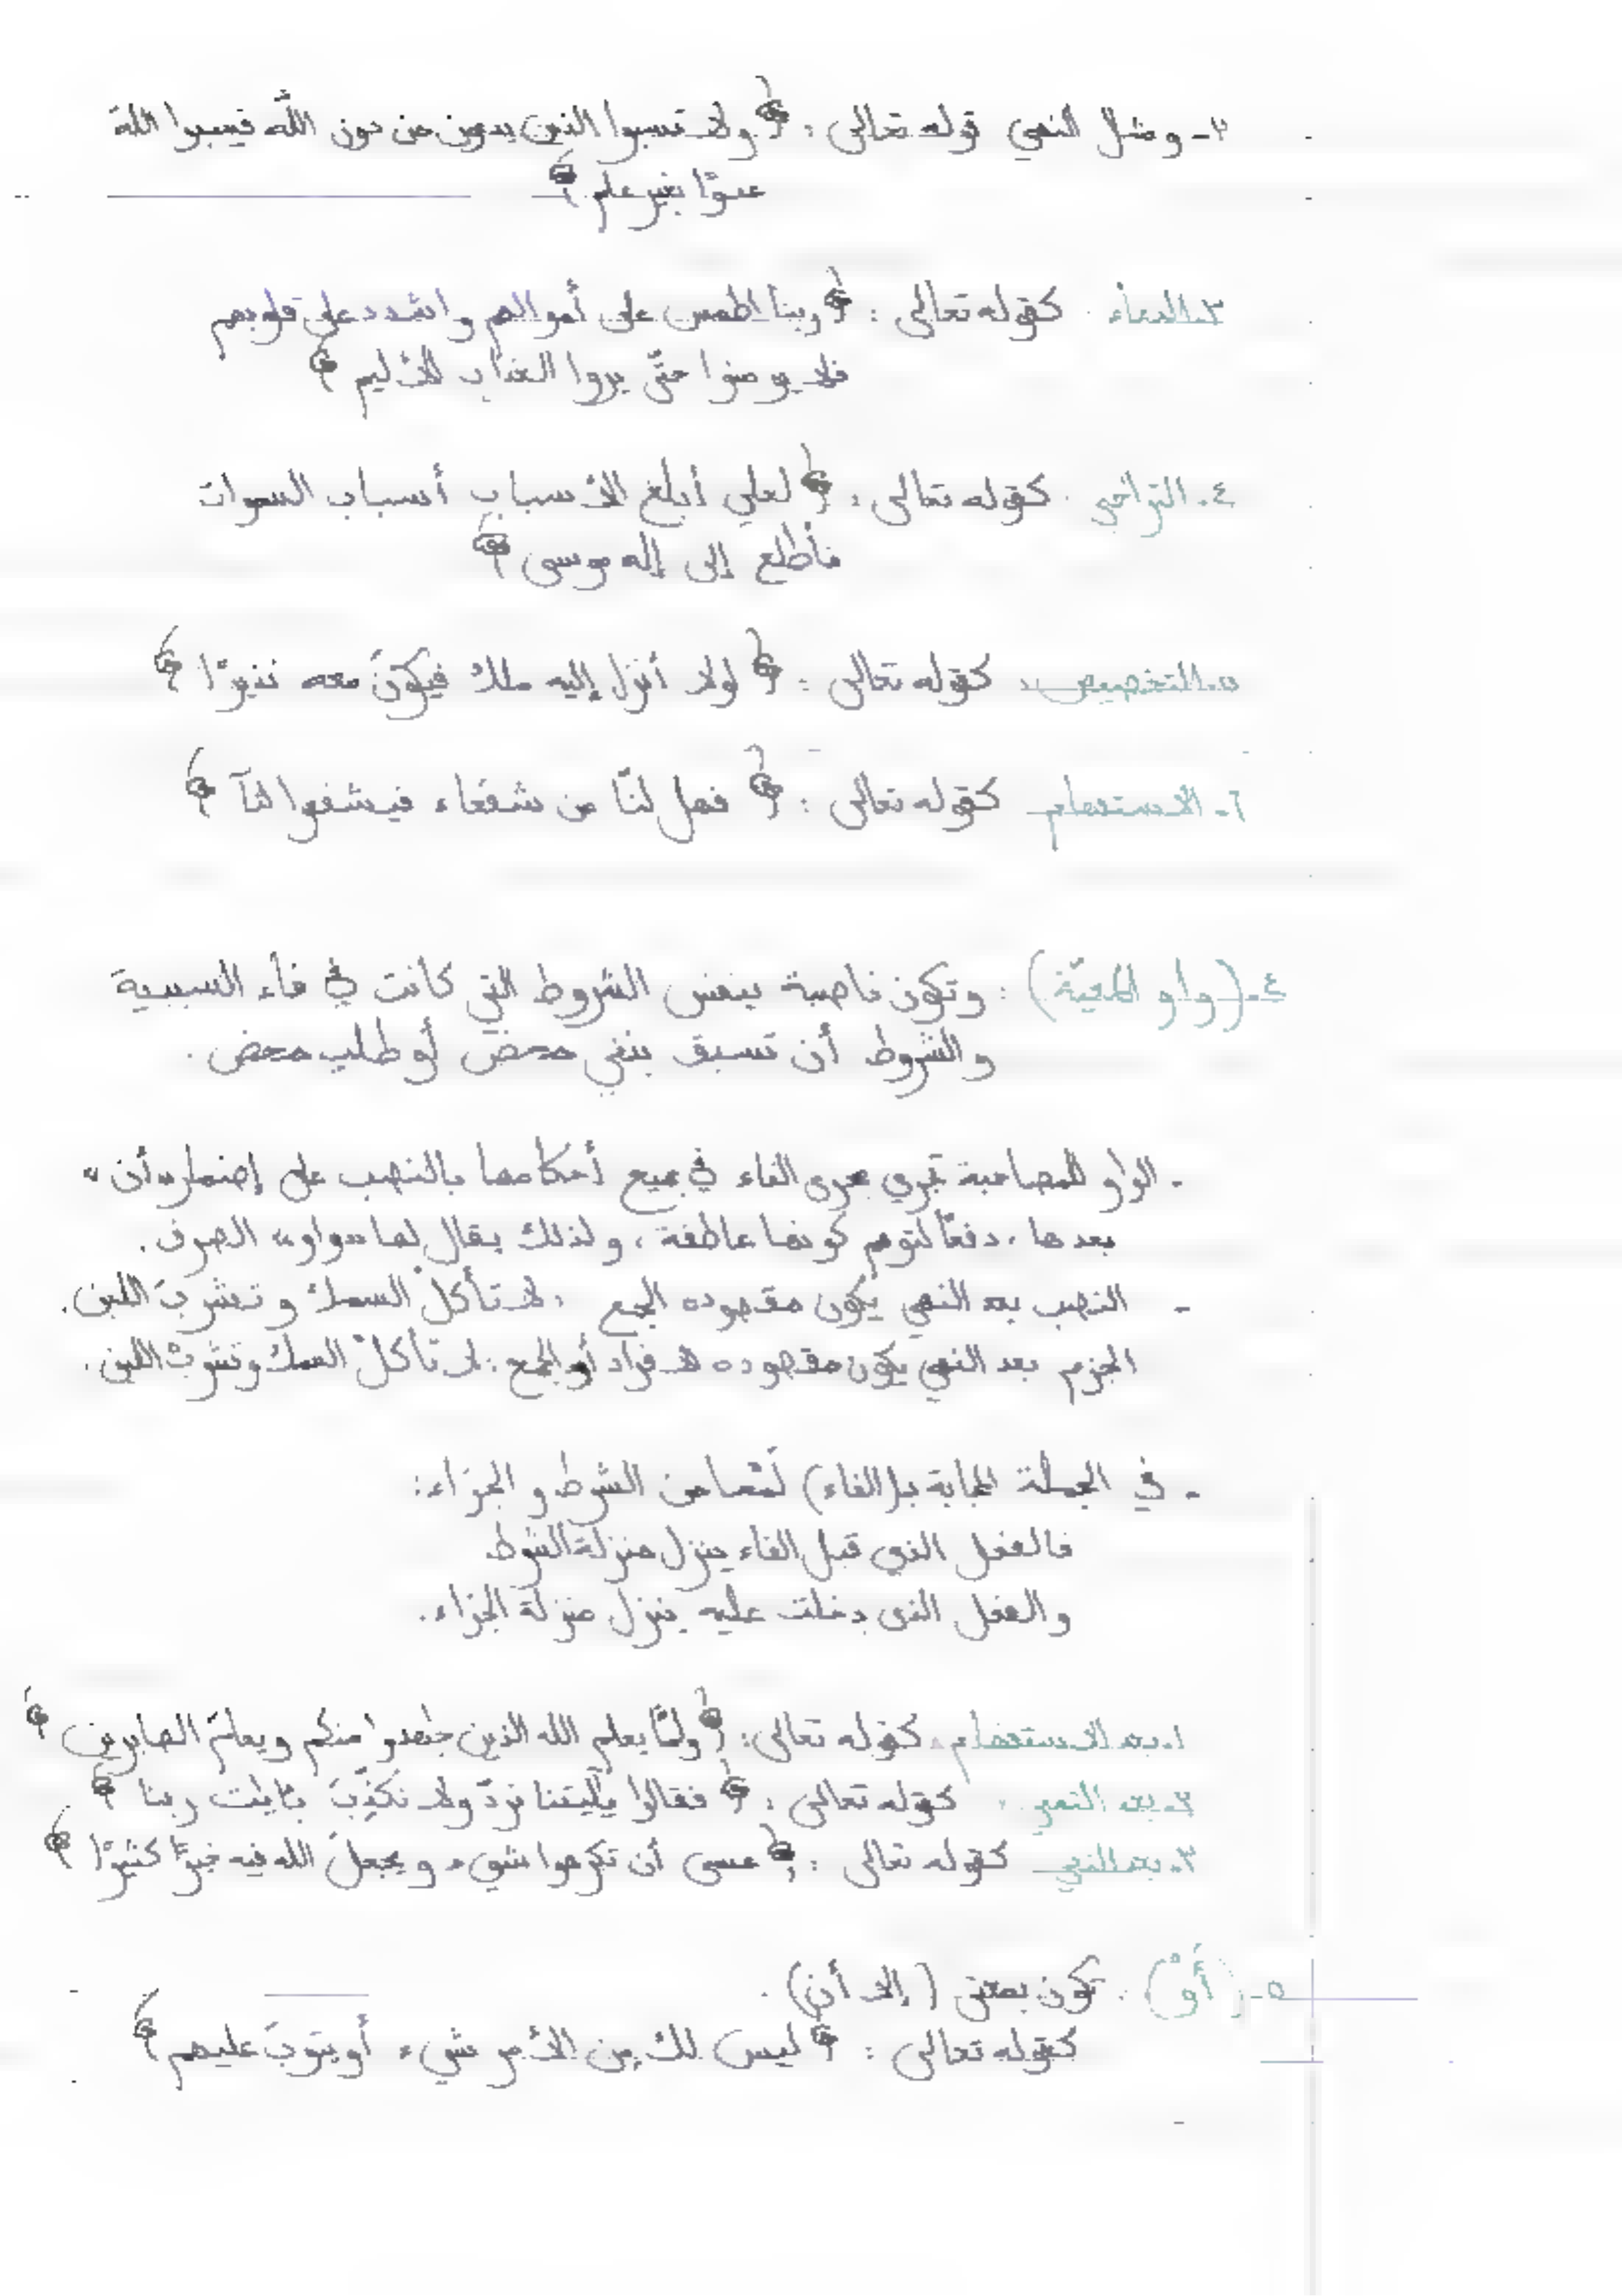 ٢- ومثل النهي قوله تعالى : ﴿ ولا تسبوا الذين يدعون من دون الله فيسبوا الله
عدوًا بغير علم ﴾
٣- الدعاء . كقوله تعالى : ﴿ ربنا اطمس على أموالهم واشدد على قلوبهم
فلا يؤمنوا حتّى يروا العذاب الأليم ﴾
٤- التراجي . كقوله تعالى : ﴿ لعلي أبلغ الأسباب أسباب السموات
فأطلع إلى إله موسى ﴾
٥- التخصيص . كقوله تعالى : ﴿ لولا أنزل إليه ملك فيكونَ معه نذيرًا ﴾
٦- الاستفهام كقوله تعالى : ﴿ فهل لنّا من شفعاء فيشفعوا لنآ ﴾
٤- (واو المعيّة) : وتكون ناصبة بنفس الشروط التي كانت في فاء السببية
والشروط أن تسبق بنفي محض أو طلب محض .
- الواو للمصاحبة تجري مجرى الفاء في جميع أحكامها بالنصب على إضمار "أن"
بعدها ، دفعًا لتوهم كونها عاطفة ، ولذلك يقال لها "واو" الصرف .
- النصب بعد النهي يكون مقصوده الجمع : لا تأكلْ السمك وتشربَ اللبن .
الجزم بعد النهي يكون مقصوده لافراد أو الجمع : لا تأكلْ السمك وتشربْ اللبن .
- في الجملة المجابة بـ (الفاء) لَمْحا من الشرط و الجزاء :
فالفعل الذي قبل الفاء ينزل منزلة الشرط
والفعل الذى دخلت عليه ينزل منزلة الجزاء .
١- بعد الاستفهام . كقوله تعالى : ﴿ ولمّا يعلم الله الذين جٰهدوا منكم ويعلمَ الصابرين ﴾
٢- بعد التمني . كقوله تعالى : ﴿ فقالوا يٰليتنا نردّ ولا نكذّبَ بـٔايٰت ربنا ﴾
٣- بعد النفي كقوله تعالى : ﴿ عسى أن تكرهوا شيء ويجعلَ الله فيه خيرًا كثيرًا ﴾
٥- (أوْ) . تكون بمعنى (إلا أن) .
كقوله تعالى : ﴿ ليس لك من الأمر شيء أو يتوبَ عليهم ﴾